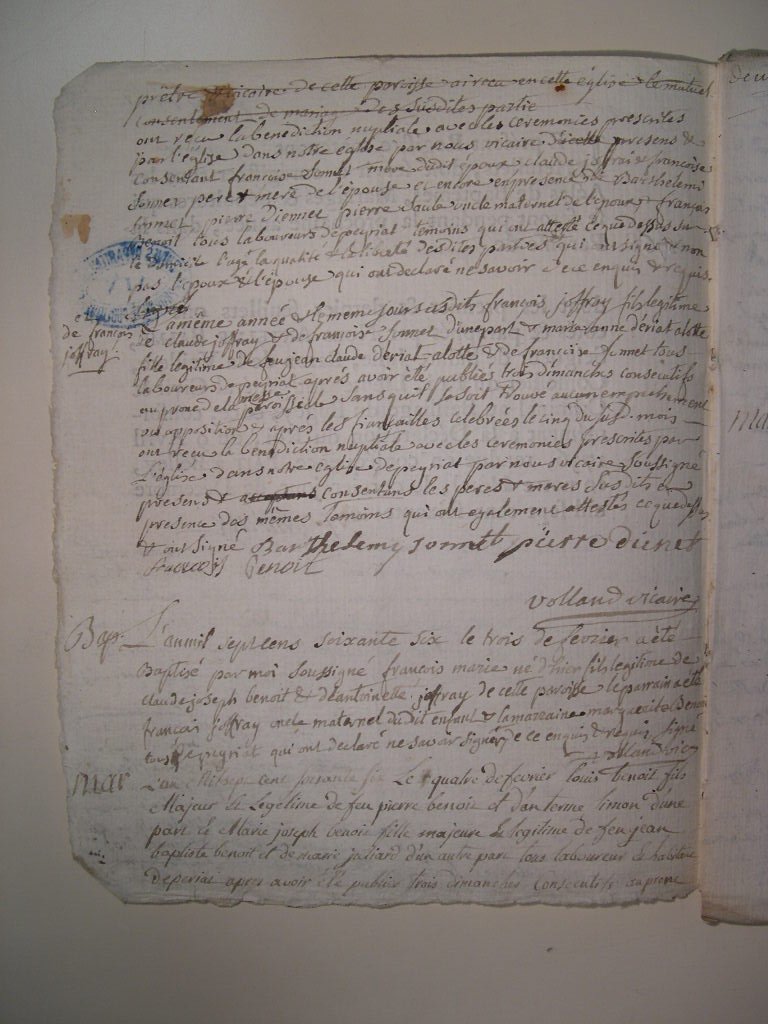 prêtre & vicaire de cette paroisse airecu en cette église le mutuel
consentement de mariage des susdites partie
ont recu la benediction nuptiale avec les ceremonies prescrites
par l'église dans notre eglise par nous vicaire presens &
consentant françoise Sonnet mere dudit époux claude françoise
Sonnet pere & mere de l'épouse et encore en presence de Barthelemi
Sonnet pierre Diennet pierre oncle maternel de l'epoux & françois
benoit tous laboureurs de peyriat temoins qui ont attesté ce que dessus sur
le domicile l'agé la qualité & la liberté desdites parties qui ont signé & non
pas l'epoux & l'épouse qui ont declaré ne savoir de ce enquis & requis
La même année & le meme jour susdits françois joffray fils legitime
de françois
joffray.
de claude joffray & de françoise Sonnet d'une part & marie anne dériat alotte
fille legitime de feu jean claude dériat alotte & de francoise Sonnet tous
laboureurs de peyriat aprés avoir été publiés trois dimanches consecutifs
au prone de la messe paroissiale sans qu'il se soit trouvé aucun empechement
ou opposition & aprés les fiançailles celebrées le cinq du susd. mois
ont recu la benediction nuptiale avec les ceremonies prescrites par
L'église dans notre eglise de peyriat par nous vicaire soussigné
presens & consentans les peres & meres susdits en
presence des mêmes temoins qui ont egalement attestés ce que dessus
& ont signé Barthelemy Sonnet pierre dienet
francois Benoit
volland vicaire
Bap. L'an mil sept cens soixante six le trois de fevrier a été
Baptisé par moi soussigné francois marie né d'hier fils legitime de
claude joseph benoit & d'antoinette joffray de cette paroisse le parrain a été
françois joffray oncle maternel dudit enfant & la marraine marguerite Benoit
tous de peyriat qui ont declaré ne savoir signer de ce enquis & requis signé
volland vic
Mar L'an mil sept cent soixante six Le quatre de fevrier louis benoit fils
Majeur et Legetime de feu pierre benoit et d'anterme limon d'une
part et Marie joseph benoit fille majeure et legitime de feu jean
baptiste benoit et de marie juliard d'un autre part tous laboureur et habitant
deperiat apres avoir été publier trois dimanches Consecutifs au prone